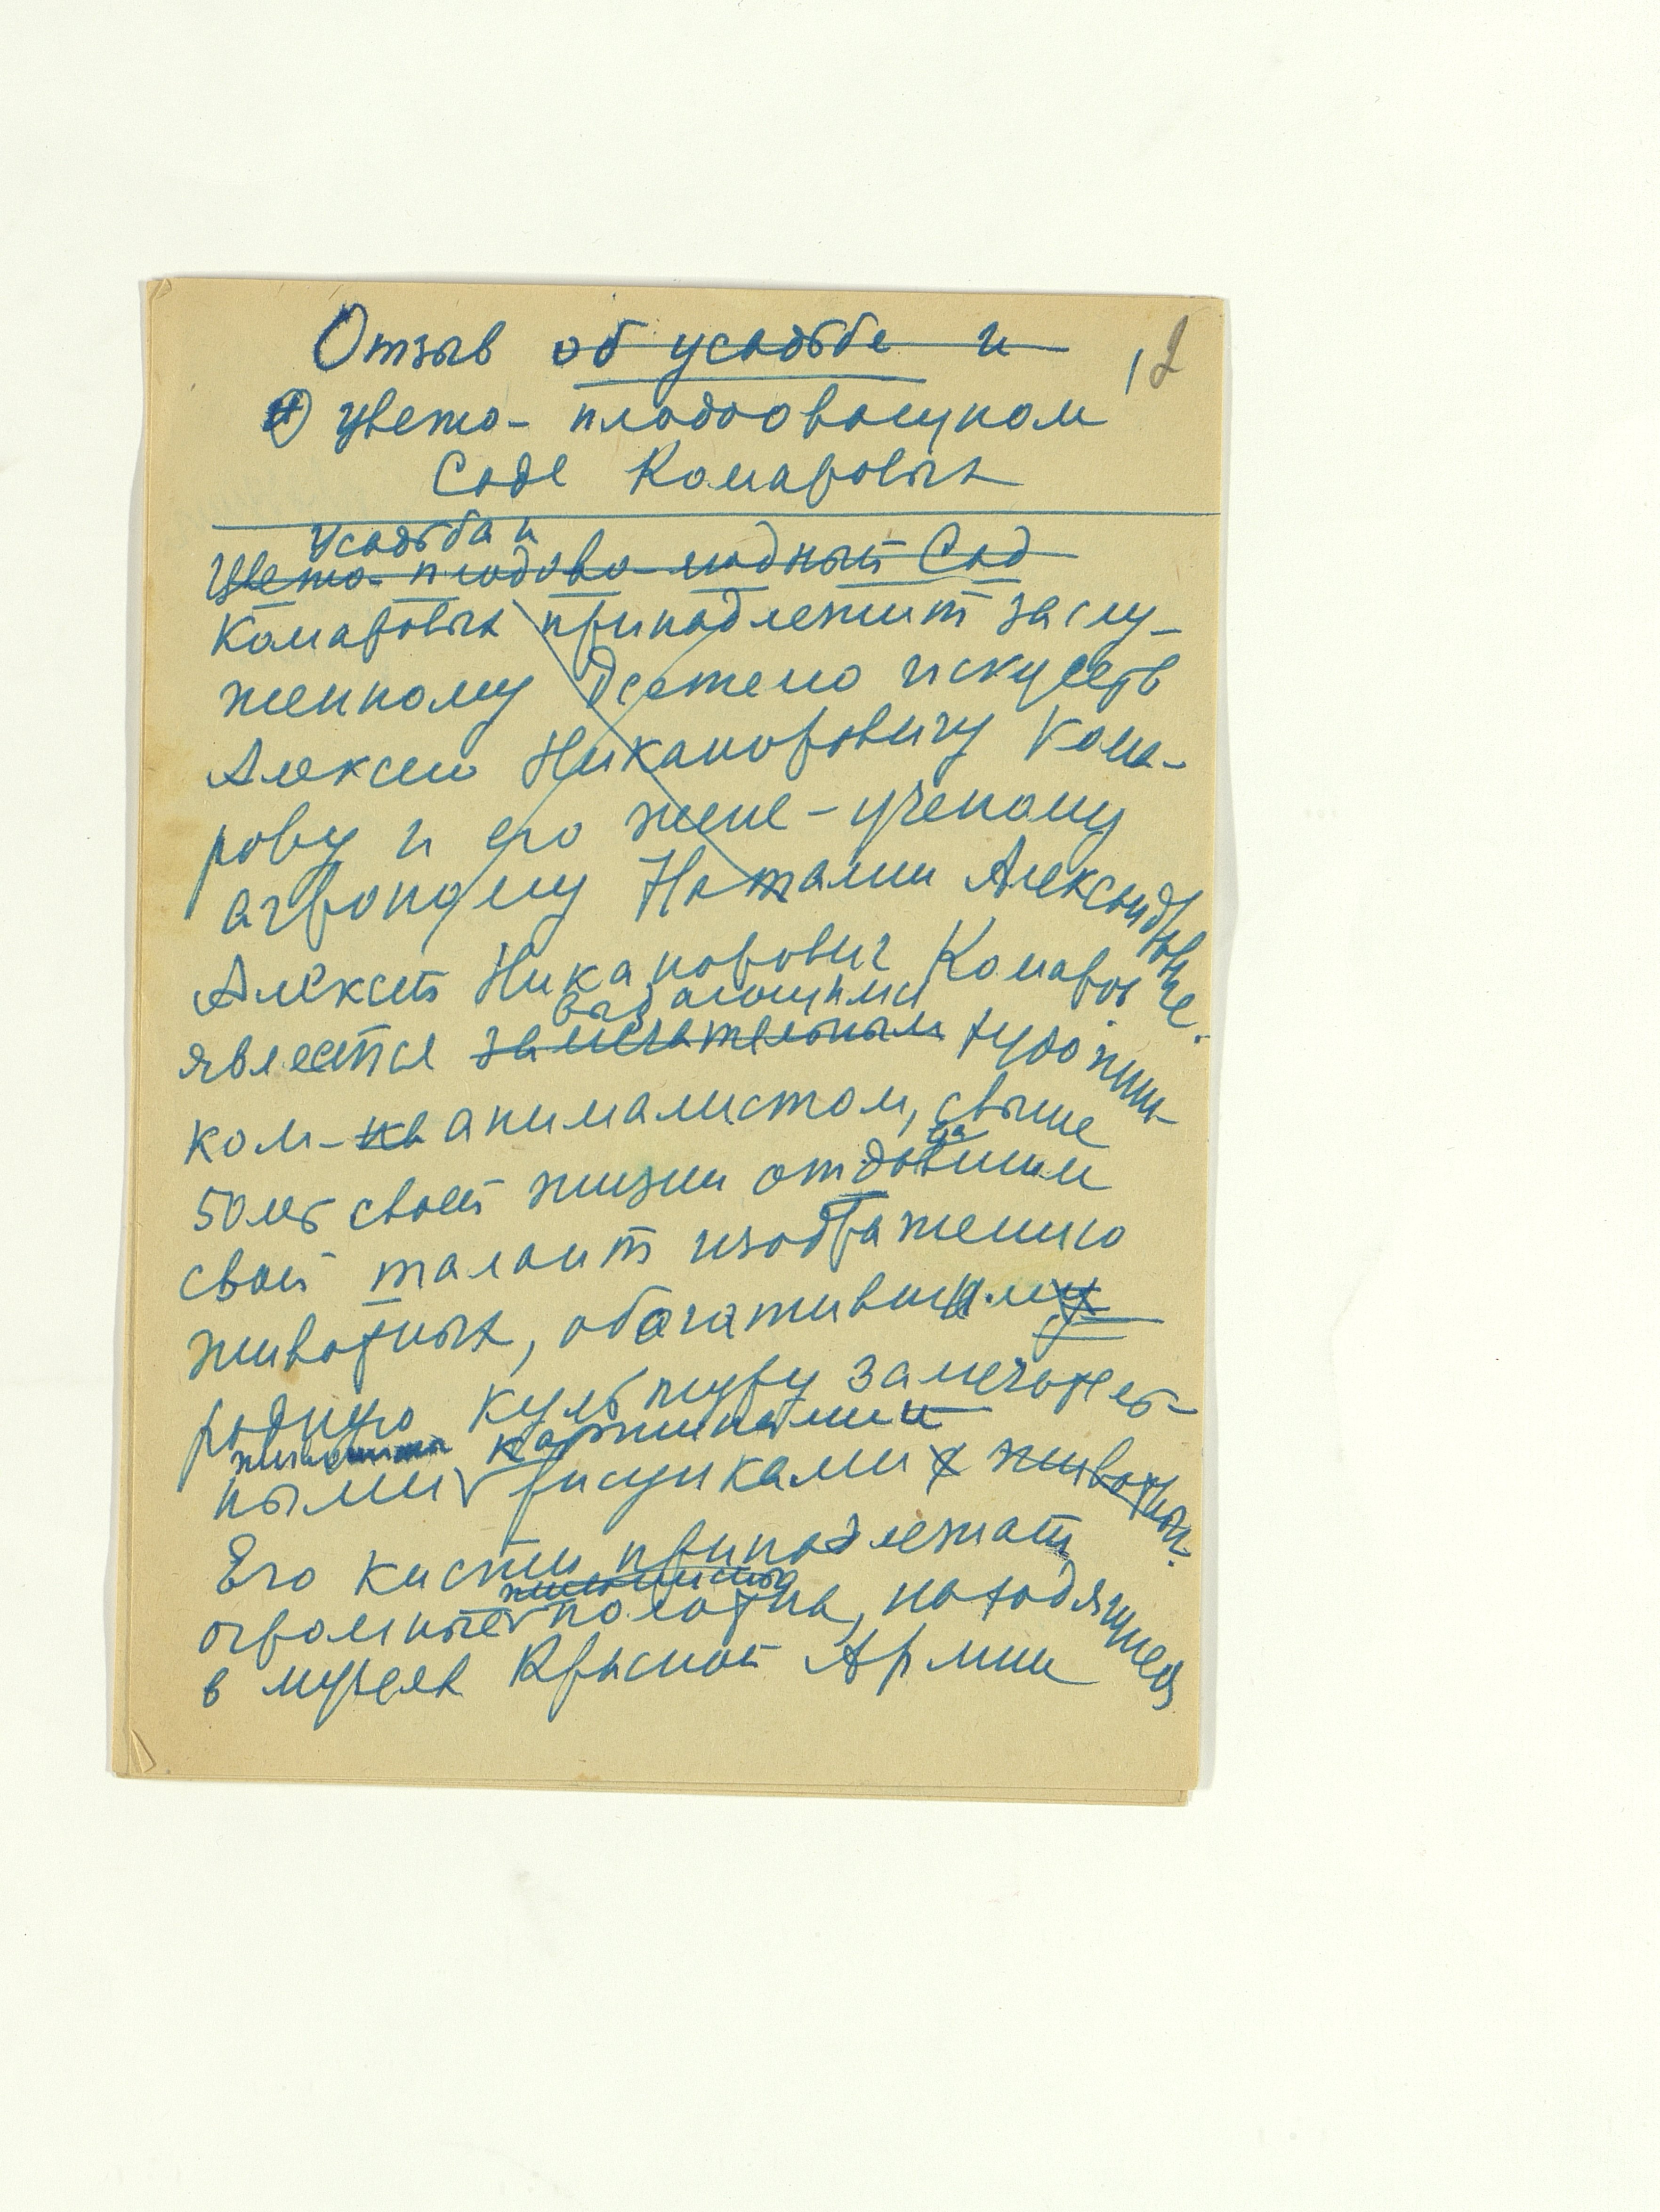 Отзыв об усадьбе и
12
цвето-плодоовощном
Саде Комаровых
Усадьба и
Цвето-плодово-ягодный Сад
Комаровых принадлежит заслу-
женному деятелю искусств
Алексею Никаноровичу Кома-
рову и его жене-ученому
агроному Наталии Александровне.
Алексей Никанорович Комаров
выдающимся
является замечательным художни-
ком-анималистом, свыше
50 лет своей жизни отдавшим
свой талант изображению
животных, обогатившим
родную культуру замечатель-
картинами и
ными рисунками животных.
Его кисти принадлежат
огромные полотна, находящиеся
в музеях Красной Армии